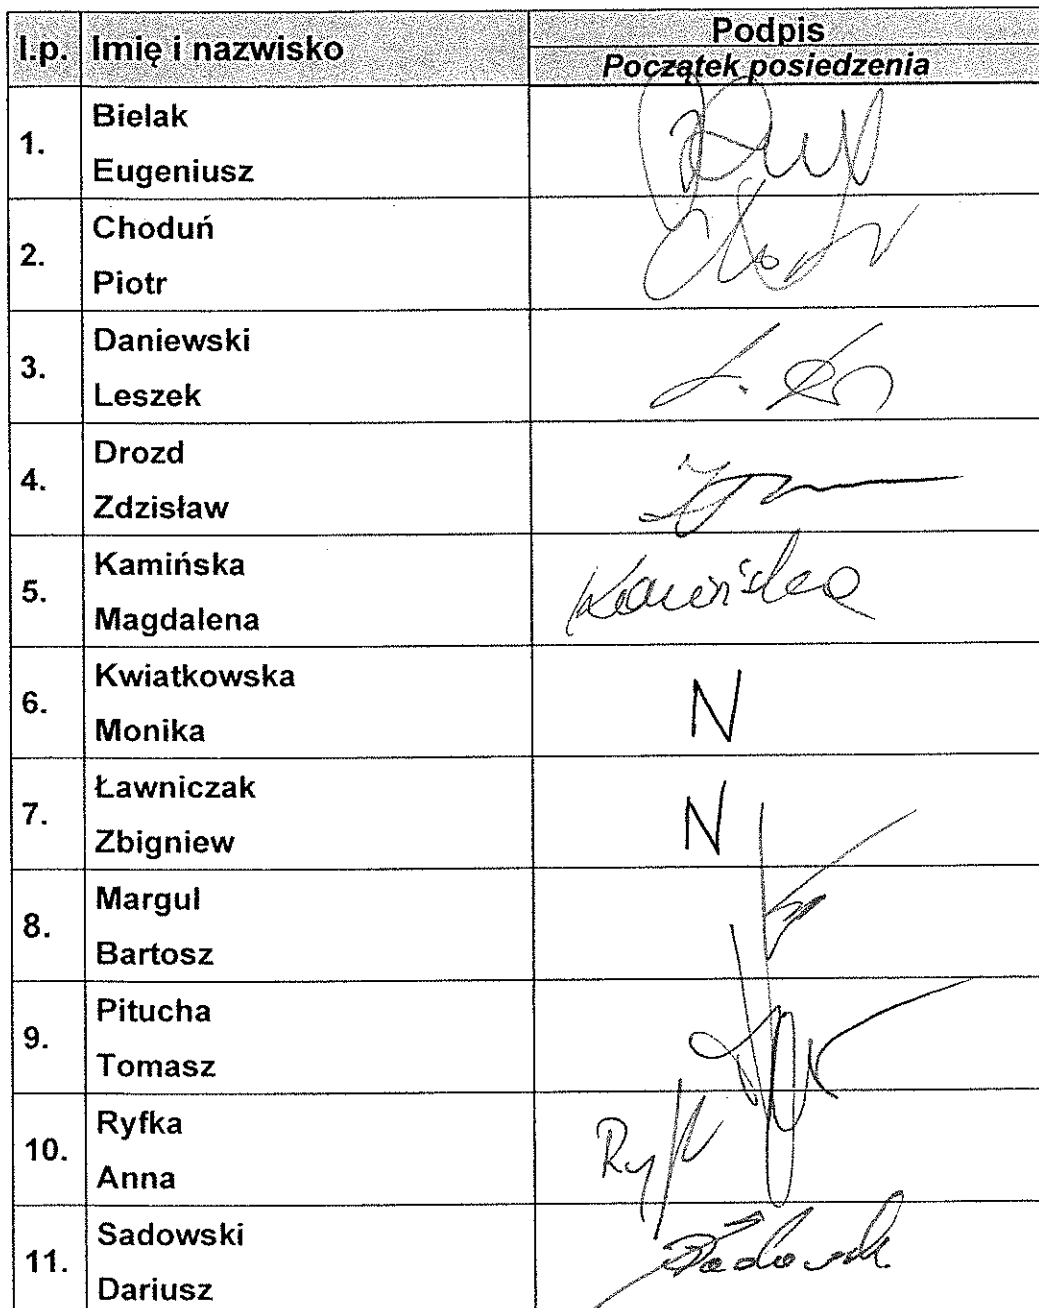 l.p. Imię i nazwisko Podpis
Początek posiedzenia
1. Bielak
Eugeniusz
2. Choduń
Piotr
3. Daniewski
Leszek
4. Drozd
Zdzisław
5. Kamińska
Magdalena
Kamińska
6. Kwiatkowska
Monika
N
7. Ławniczak
Zbigniew
N
8. Margul
Bartosz
9. Pitucha
Tomasz
10. Ryfka
Anna
11. Sadowski
Dariusz